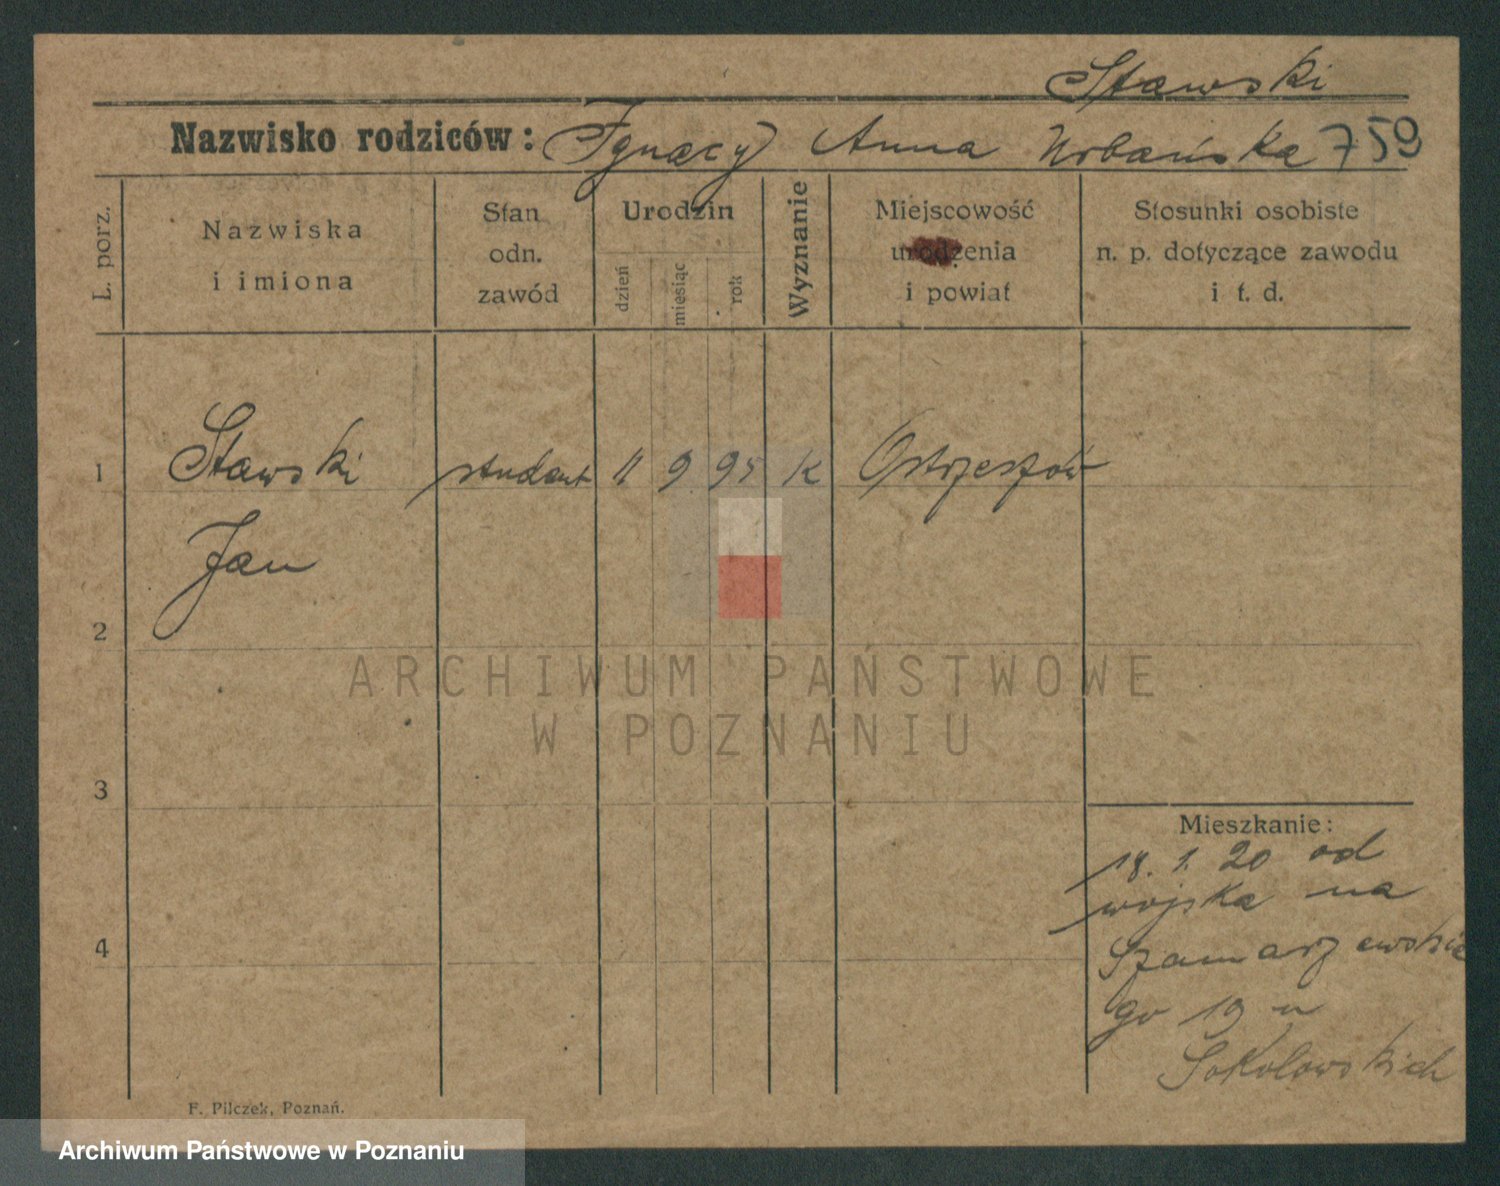 Stawski
Nazwisko rodziców: Ignacy Anna Urbańska 759
L. porz.
Nazwiska
i imiona
Stan
odn.
zawód
Urodzin
dzień
miesiąc
rok
Wyznanie
Miejscowość
urodzenia
i powiat
Stosunki osobiste
n. p. dotyczące zawodu
i t. d.
1 Stawski student 11 9. 95 K Ostrzeszów
Jan
2
ARCHIWUM PAŃSTWOWE
W POZNANIU
3
Mieszkanie:
18. 1. 20 od
wojska na
4
Szamarzewskie
go 19 u
Sokolowskich
F. Pilczek, Poznań.
Archiwum Państwowe w Poznaniu